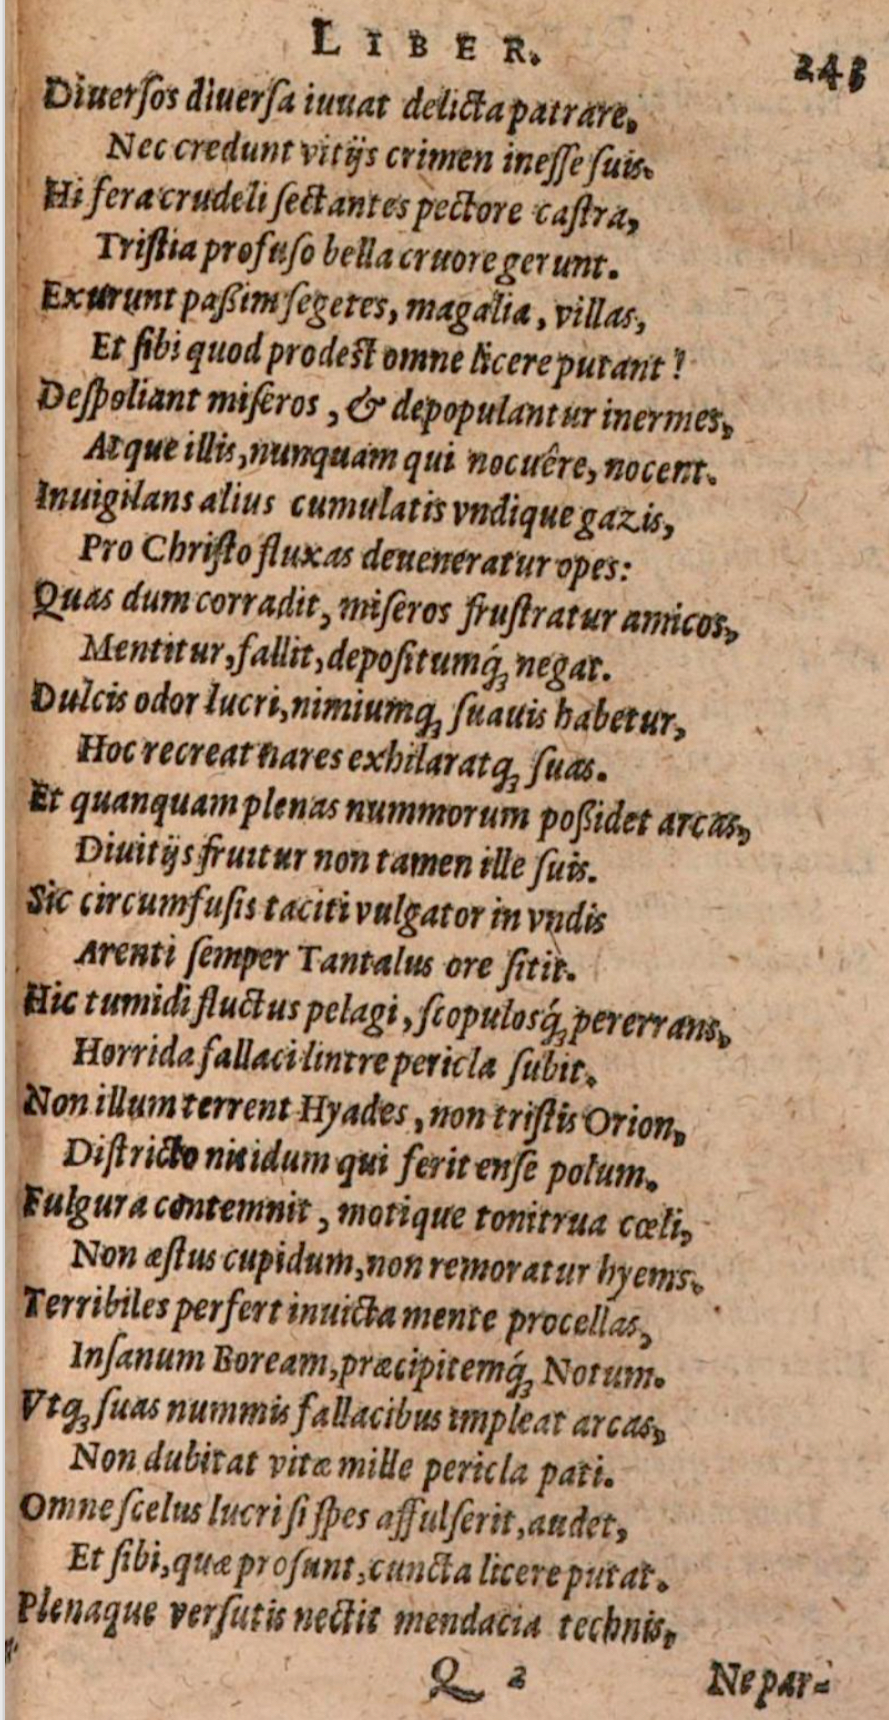 LIBER.
243
Diuerſos diuerſa iuuat delicta patrare,
Nec credunt vitijs crimen ineſſe ſuis.
Hi fera crudeli ſectantes pectore caſtra,
Triſtia profuſo bella cruore gerunt.
Exurunt paßim ſegetes, magalia, villas,
Et ſibi quod prodest omne licere putant!
Deſpoliant miſeros, & depopulantur inermes,
Atque illis, nunquam qui nocuêre, nocent.
Inuigilans alius cumulatis vndique gazis,
Pro Chriſto fluxas deueneratur opes:
Quas dum corradit, miſeros fruſtratur amicos,
Mentitur, fallit, depoſitumq́ꝫ negat.
Dulcis odor lucri, nimiumqꝫ ſuauis habetur,
Hoc recreat nares exhilaratqꝫ ſuas.
Et quanquam plenas nummorum poßidet arcas,
Diuitijs fruitur non tamen ille ſuis.
Sic circumfuſis taciti vulgator in vndis
Arenti ſemper Tantalus ore ſitit.
Hic tumidi fluctus pelagi, ſcopulosq́ꝫ pererrans,
Horrida fallaci lintre pericla ſubit.
Non illum terrent Hyades, non triſtis Orion,
Diſtricto nitidum qui ferit enſe polum.
Fulgura contemnit, motique tonitrua cœli,
Non æſtus cupidum, non remoratur hyems.
Terribiles perfert inuicta mente procellas,
Inſanum Boream, præcipitemq́ꝫ Notum.
Vtqꝫ ſuas nummis fallacibus impleat arcas,
Non dubitat vitæ mille pericla pati.
Omne ſcelus lucri ſi ſpes affulſerit, audet,
Et ſibi, quæ proſunt, cuncta licere putat.
Plenaque verſutis nectit mendacia technis,
Q 2
Ne par-